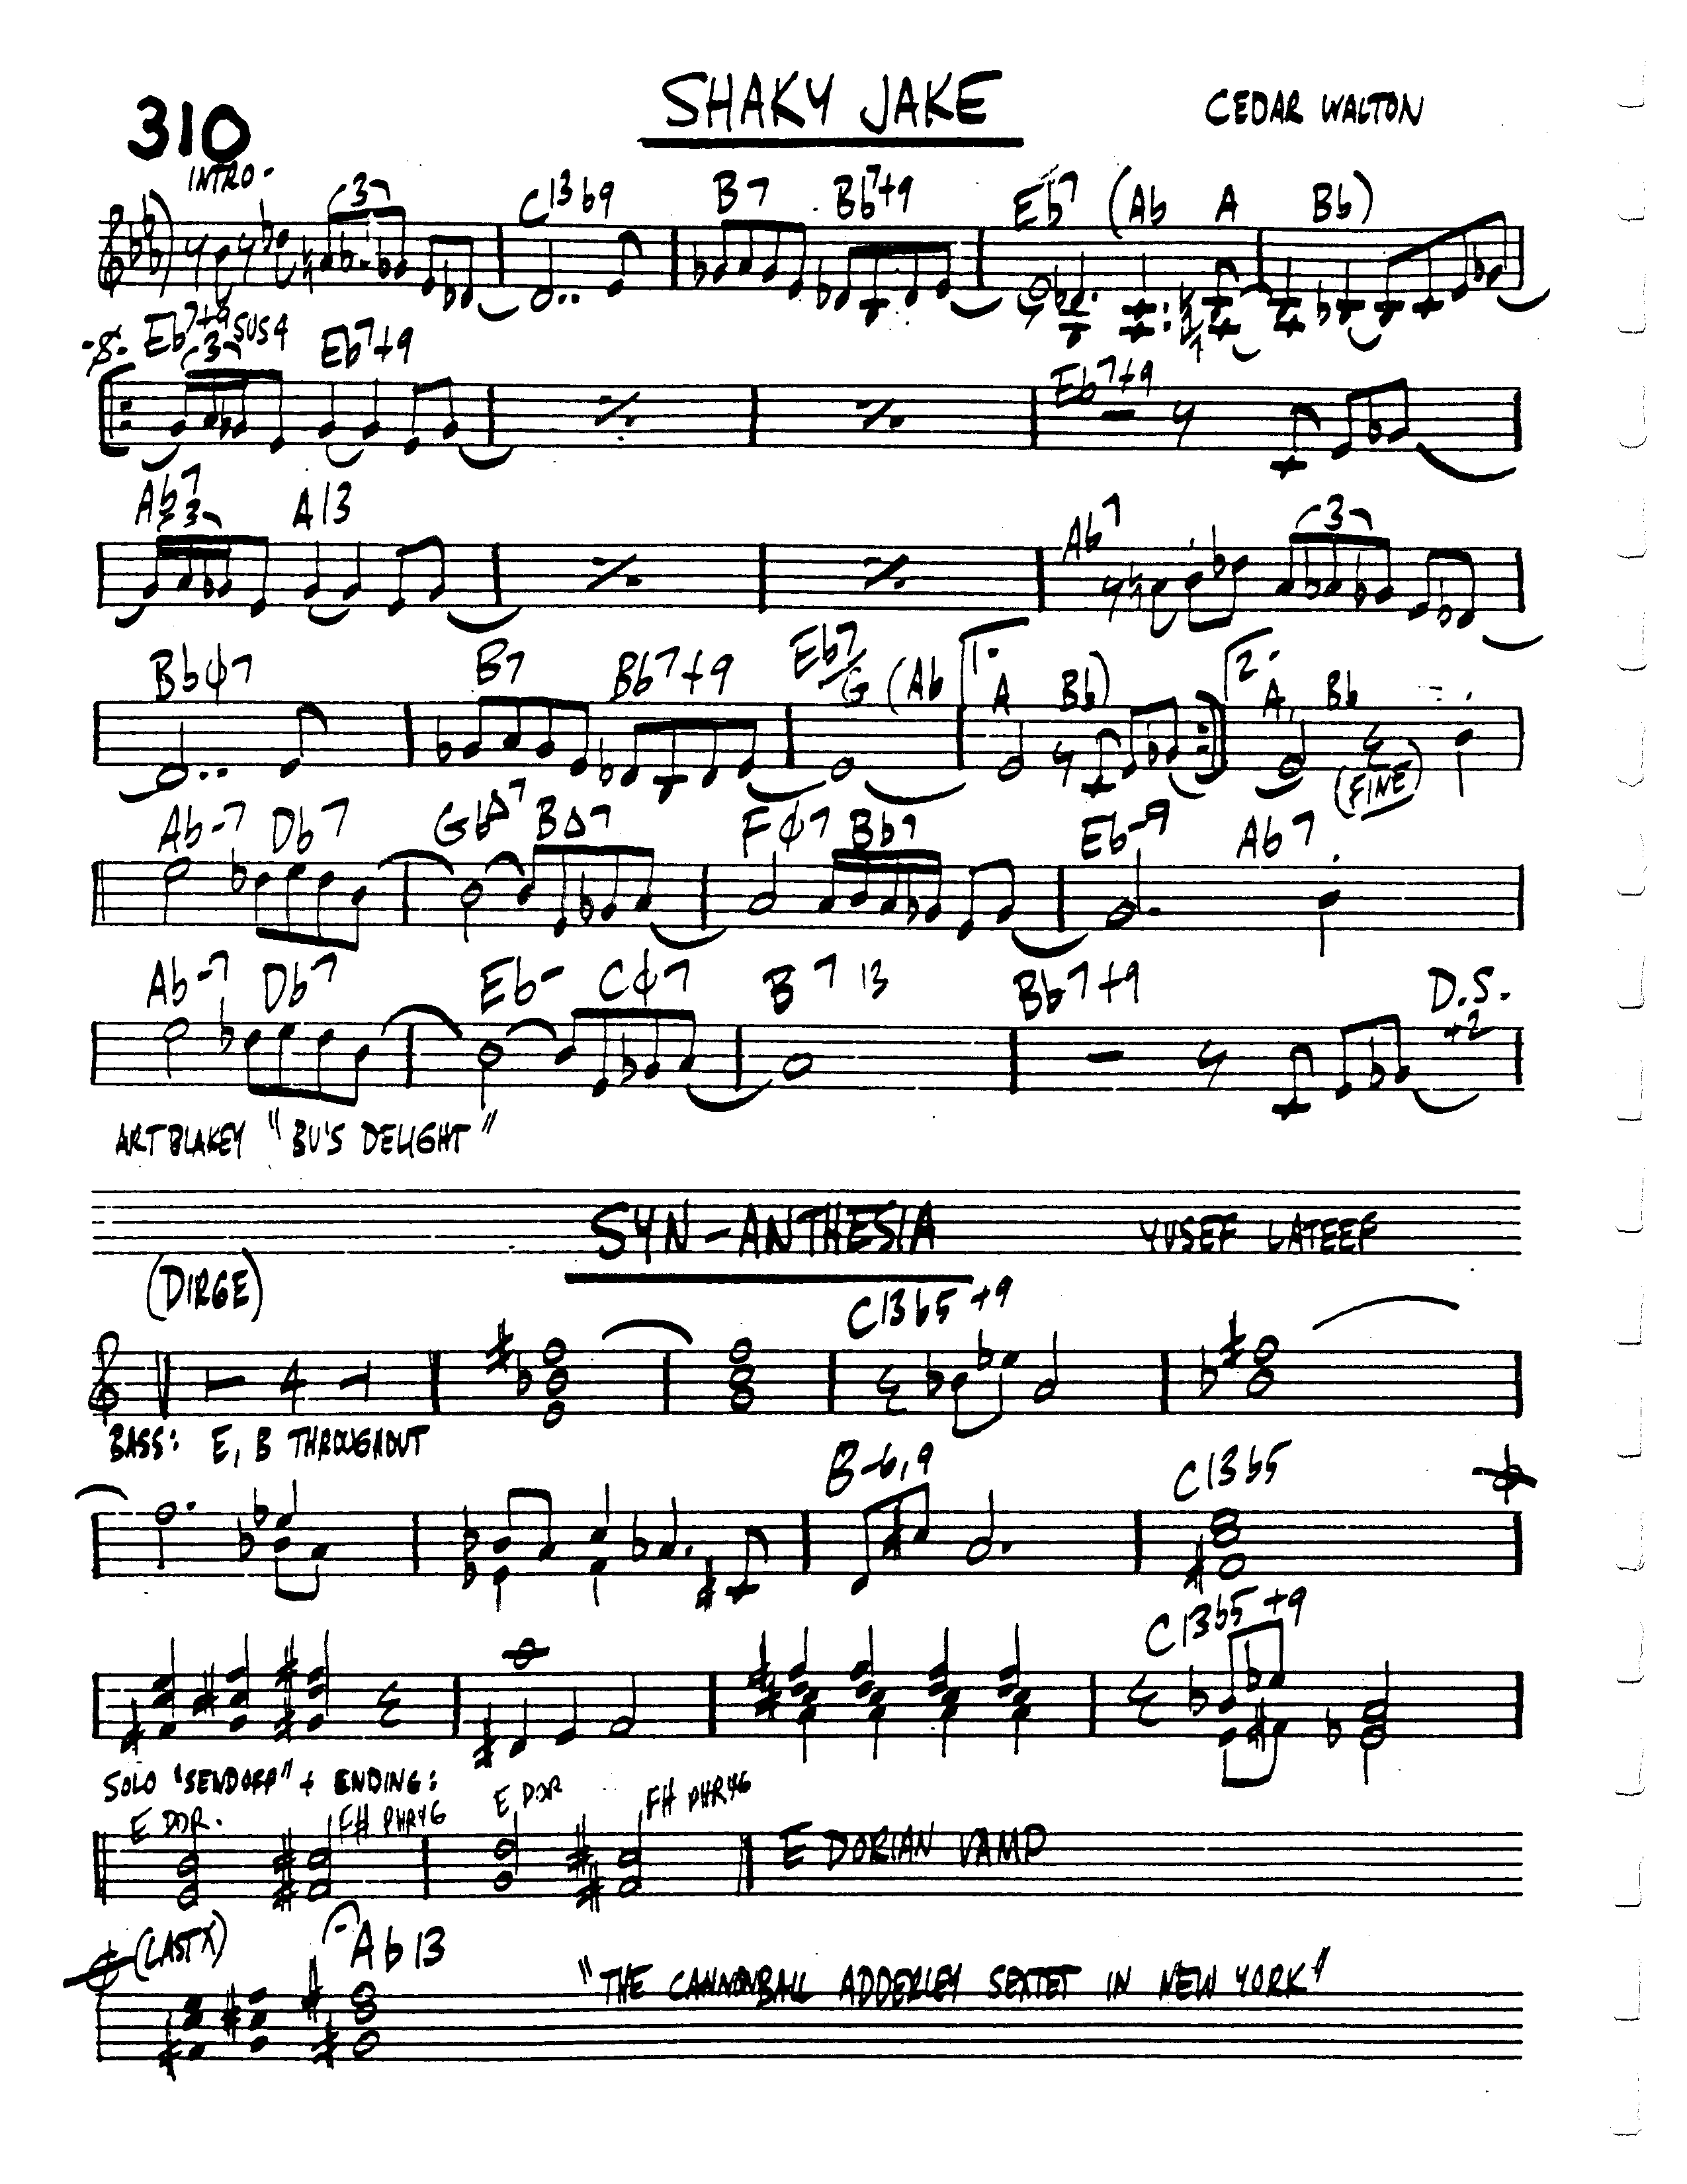 310
SHAKY JAKE
CEDAR WALTON
INTRO-
3 C13b9 B7 Bb7+9 Eb7 (Ab A Bb)
Eb7+9 SUS4 Eb7+9 Eb7+9
3
Ab7 A13 Ab7
3 3
Bbø7 B7 Bb7+9 Eb7/G (Ab 1. A Bb) 2. A Bb
(FINE)
Ab-7 Db7 GbΔ7 BΔ7 Fø7 Bb7 Eb-9 Ab7
Ab-7 Db7 Eb- Cø7 B7 13 Bb7+9 D.S.
+2
ART BLAKEY "BU'S DELIGHT"
SYN-ANTHESIA
YUSEF LATEEF
(DIRGE)
C13b5+9
4
BASS: E, B THROUGHOUT
B-6,9 C13b5
C13b5+9
SOLO "SENDOFF" + ENDING:
E DOR. F# PHRYG E DOR F# PHRYG
E DORIAN VAMP
(LAST X) Ab13
"THE CANNONBALL ADDERLEY SEXTET IN NEW YORK"